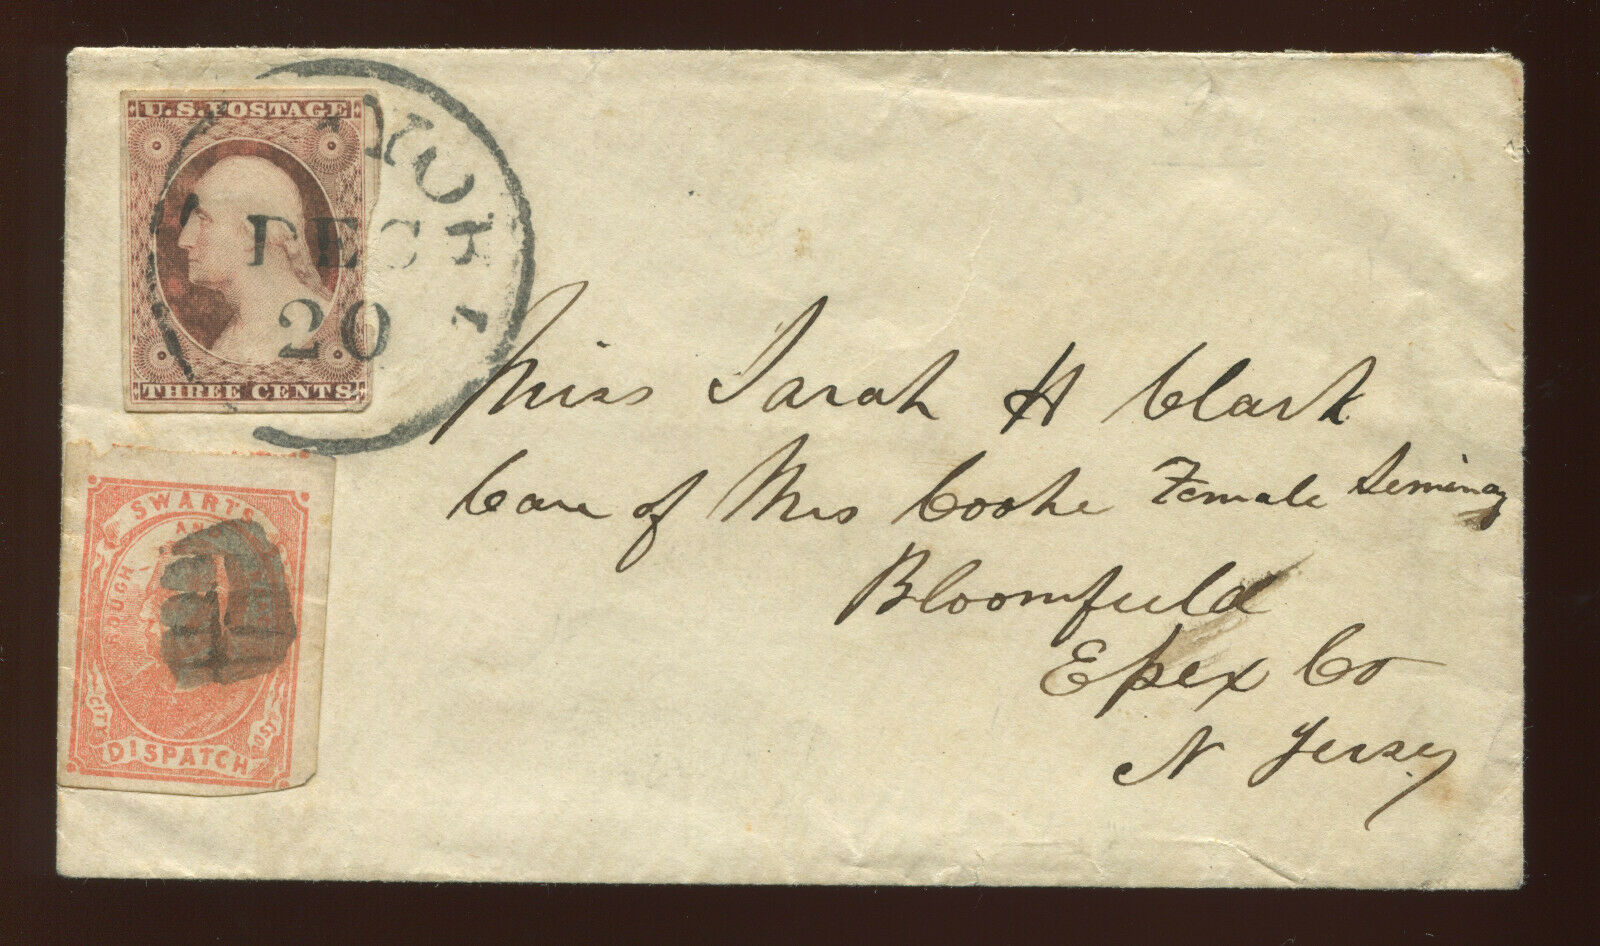 U.S. POSTAGE
THREE CENTS
YORK
DEC
20
SWARTS
ROUGH AND
CITY DISPATCH POST
Miss Sarah H Clark
Care of Mrs Cooke Female Seminay
Bloomfield
Essex Co
N Jersey